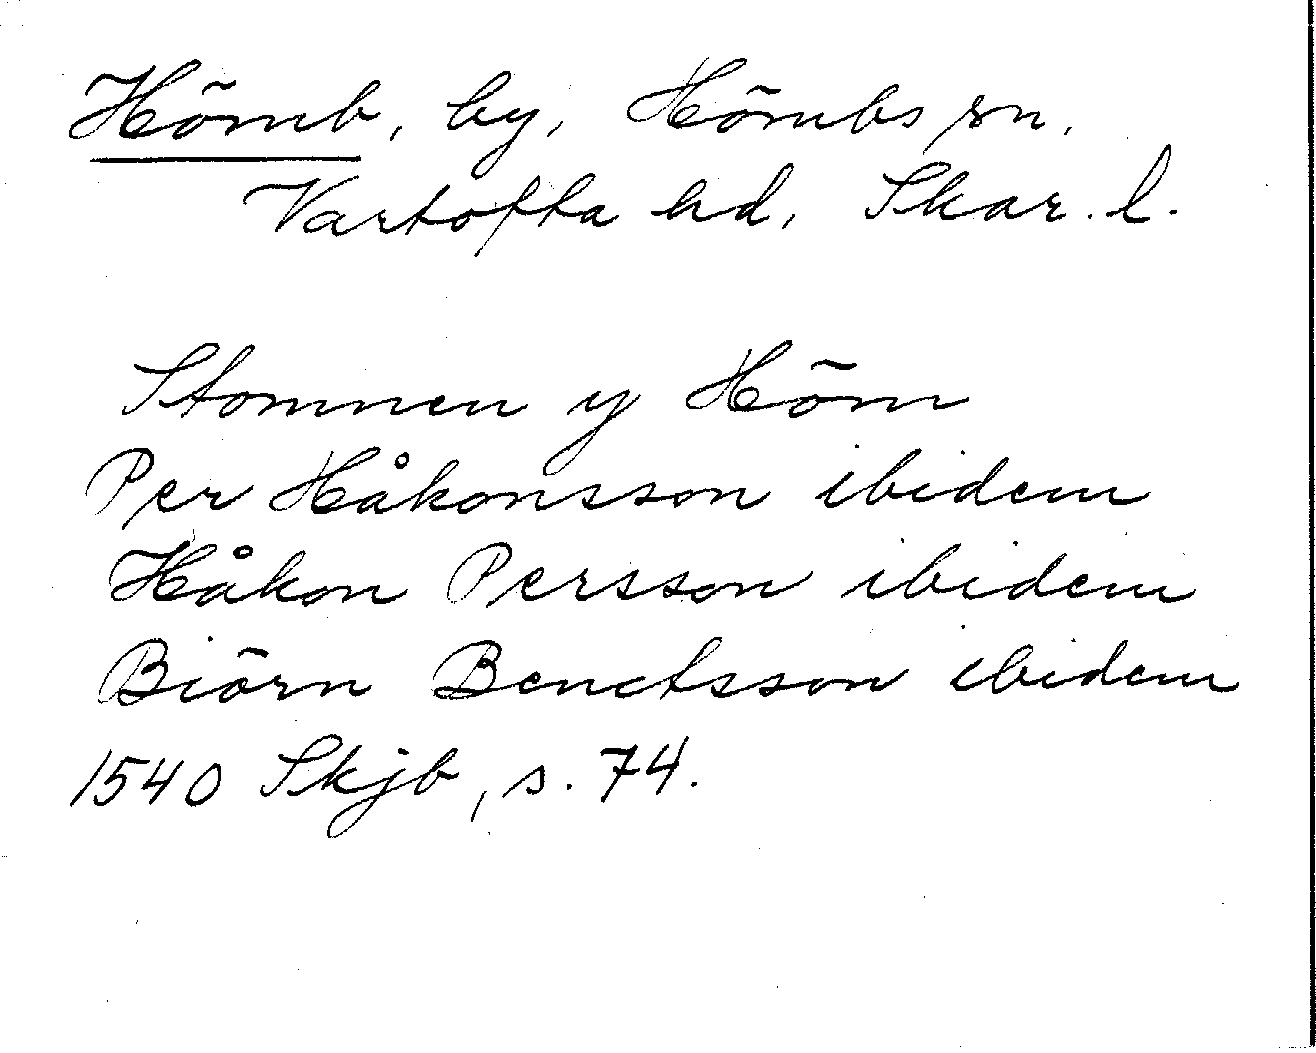 Hömb, by, Hömbs sn,
Vartofta hd, Skar. l.
Stommen y Höm
Per Håkonsson ibidem
Håkon Persson ibidem
Biörn Benctsson ibidem
1540 Skjb, s. 74.